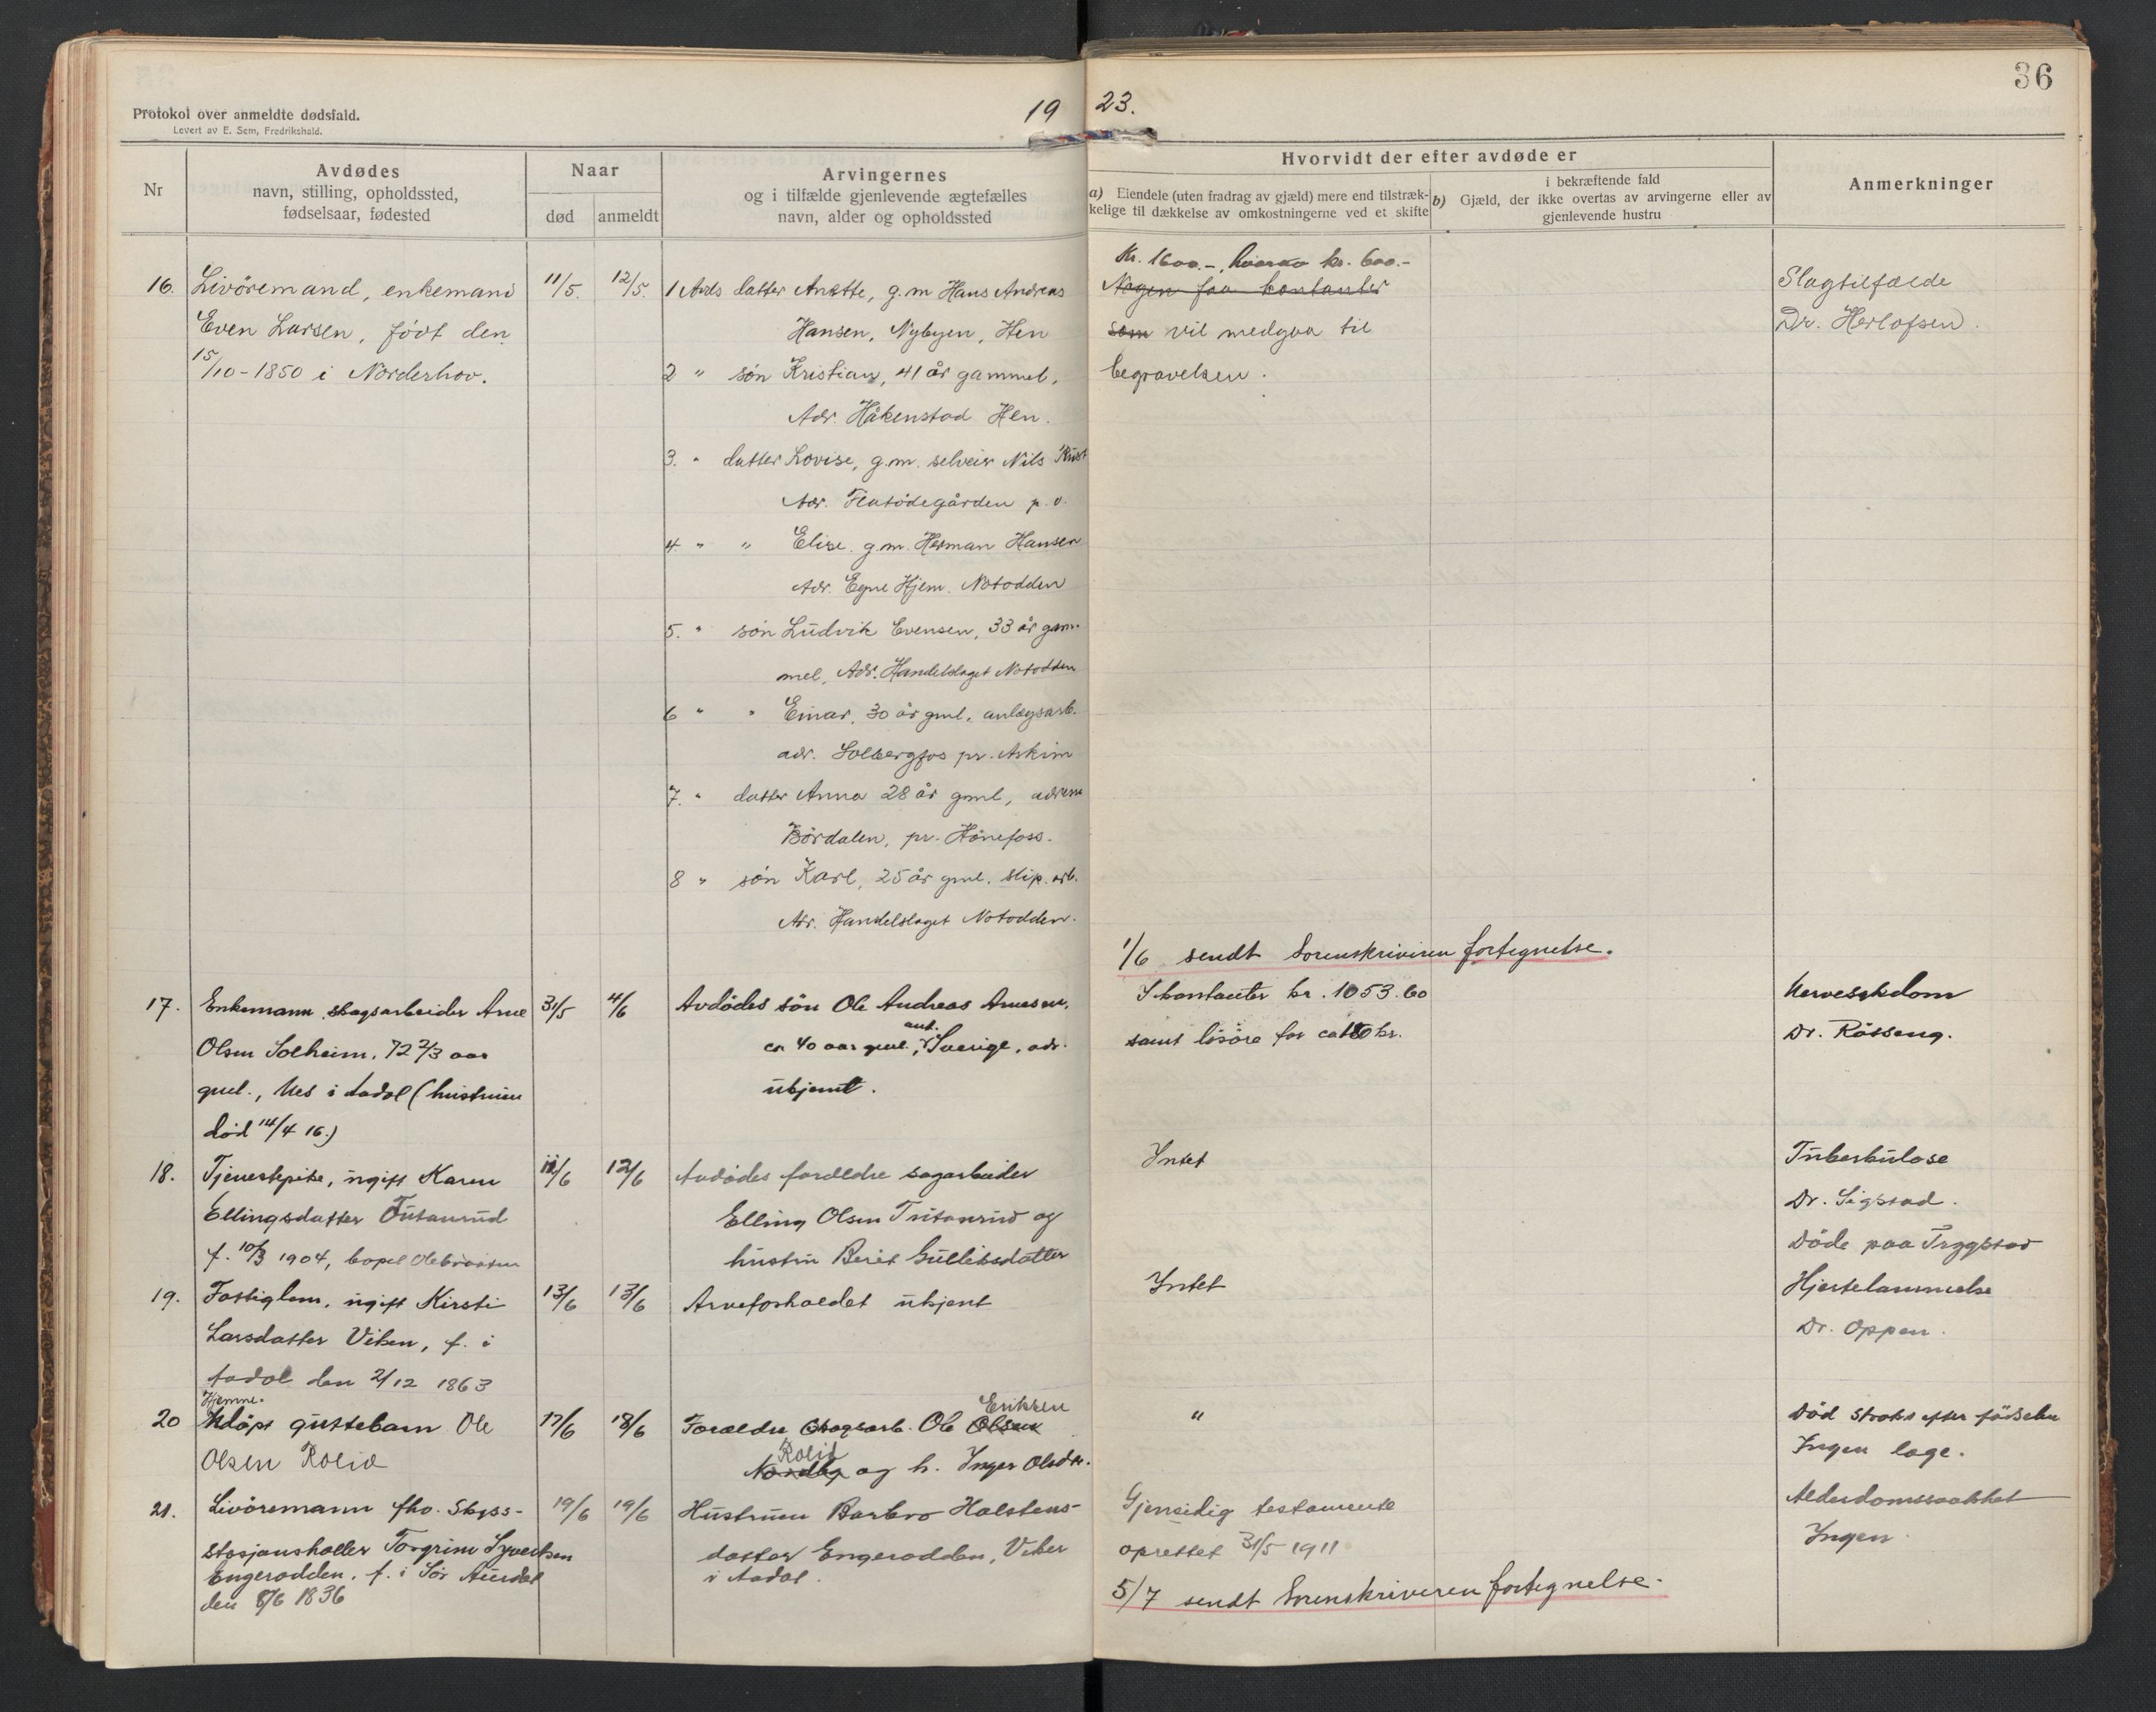 36
Protokol over anmeldte dødsfald.
Levert av E. Sem, Fredrikshald.
19 23.
Nr
Avdødes
navn, stilling, opholdssted,
fødselsaar, fødested
Naar
død
anmeldt
Arvingernes
og i tilfælde gjenlevende ægtefælles
navn, alder og opholdssted
Hvorvidt der efter avdøde er
a) Eiendele (uten fradrag av gjæld) mere end tilstræk-
kelige til dækkelse av omkostningerne ved et skifte
i bekræftende fald
b) Gjæld, der ikke overtas av arvingerne eller av
gjenlevende hustru
Anmerkninger
16. Livöremand, enkemand
Even Larsen, født den
15/10-1850 i Norderhov.
11/5. 12/5.
1 Avds datter Anette, g.m Hans Andreas
Hansen, Nybyen, Hen
2 " søn Kristian, 41 år gammel,
Adr. Håkenstad Hen.
3. " datter Lovise, g.m. selveier Nils
Adr. Flatødegården p.o.
4 " " Elise. g.m. Herman Hansen
Adr. Egne Hjem. Notodden
5. " søn Ludvik Evensen, 33 år gam-
mel, Adr. Handelslaget Notodden
6 " " Einar, 30 år gml. anlægsarb.
adr. Solbergfos pr. Askim
7. " datter Anna 28 år gml, adresse
Bördalen, pr. Hönefoss.
8 " søn Karl, 25 år gml. slip. arb.
Adr. Handelslaget Notodden.
Kr. 1600.-, hvorav kr. 600.-
Nogen faa kontanter
som vil medgaa til
begravelsen.
Slagtilfælde
Dr. Herlofsen.
1/6 sendt Sorenskriveren fortegnelse.
17. Enkemann, skogsarbeider Arne
Olsen Solheim, 72 2/3 aar
gml., Nes i Aadal (hustruen
død 14/4 16.)
31/5 4/6
Avdödes sön Ole Andreas Arnesen,
ca 40 aar gml., ant. Sverige, adr.
ukjent.
I kontanter kr. 1053.60
samt lösöre for ca kr.
Nervesykdom
Dr. Rösseng.
18. Tjenestepike, ugift Karen
Ellingsdatter Tutanrud
f. 10/3 1904, bopel Olebraaten
11/6 12/6
Avdödes foreldre sagarbeider
Elling Olsen Tutanrud og
hustru Berit Gulleksdatter
Intet
Tuberkulose
Dr. Sigstad.
Döde paa Tryggstad
19. Fattiglem, ugift Kirsti
Larsdatter Viken, f. i
Aadal den 2/12 1863
13/6 13/6
Arveforholdet ukjent
Intet
Hjertelammelse
Dr. Oppen.
20 Hjemme-
döpt guttebarn Ole
Olsen Rolid
17/6 18/6
Forældre skogsarb. Ole Olsen Eriksen
Nordby Rolid og h. Inger Olsdtr.
"
Död straks efter födselen
Ingen læge.
21. Livöremann fho. Skyss-
stasjonsholder Torgrim Syvertsen
Engerodden, f. i Sör Aurdal
den 8/6 1836
19/6 19/6
Hustruen Barbro Halstens-
datter Engerodden, Viker
i Aadal.
Gjensidig testamente
oprettet 31/5 1911
5/7 sendt Sorenskriveren fortegnelse.
Alderdomssvakhet
Ingen